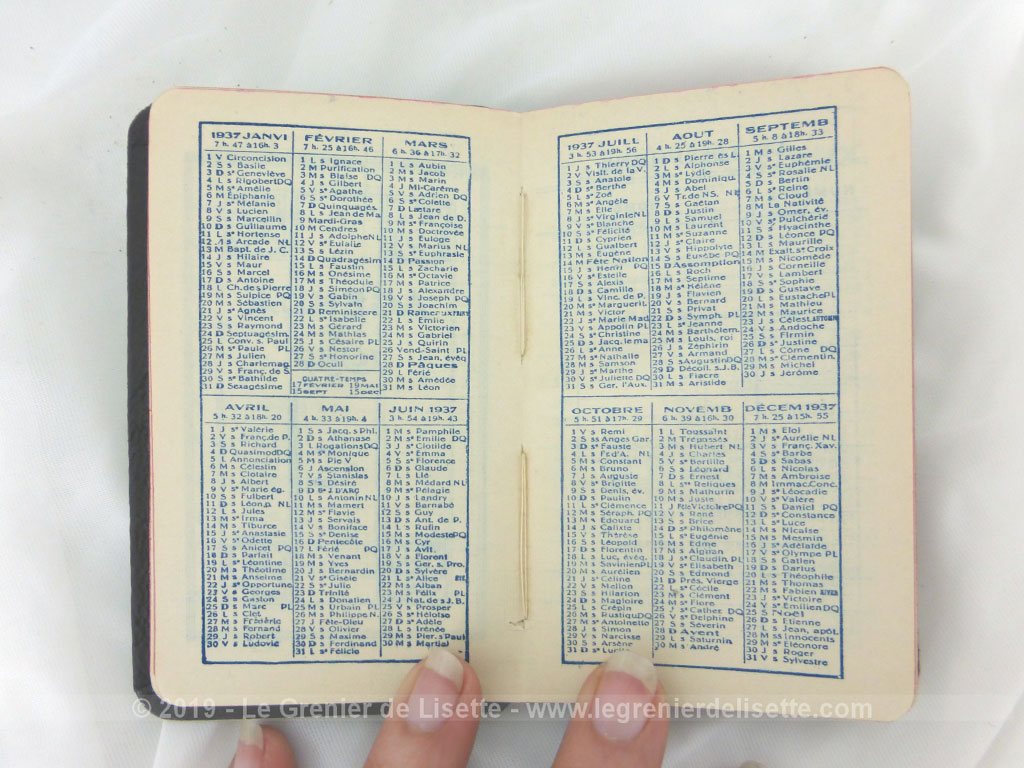 1937 JANVI
7 h. 47 à 16h. 3
1 V Circoncision
2 S s Basile
3 D sᵉ Geneviève
4 L s Rigobert DQ
5 M s Amélie
6 M Épiphanie
7 J sᵉ Mélanie
8 V s Lucien
9 S s Marcellin
10 D s Guillaume
11 L sᵉ Hortense
12 M s Arcade NL
13 M Bapt. de J. C.
14 J s Hilaire
15 V s Maur
16 S s Marcel
17 D s Antoine
18 L Ch. de s Pierre
19 M s Sulpice PQ
20 M s Sébastien
21 J sᵉ Agnès
22 V s Vincent
23 S s Raymond
24 D Septuagésim.
25 L Conv. s. Paul
26 M sᵉ Paule PL
27 M s Julien
28 J s Charlemag.
29 V s Franç. de S.
30 S sᵉ Bathilde
31 D Sexagésime
FÉVRIER
7 h. 25 à 16h. 46
1 L s Ignace
2 M Purification
3 M s Blaise DQ
4 J s Gilbert
5 V sᵉ Agathe
6 S sᵉ Dorothée
7 D Quinquagés.
8 L s Jean de Ma.
9 Mardi-Gras
10 M Cendres
11 J s Adolphe NL
12 V sᵉ Eulalie
13 S s Lézin
14 D Quadragésim
15 L s Faustin
16 M s Onésime
17 M s Théodule
18 J s Siméon PQ
19 V s Gabin
20 S s Sylvain
21 D Reminiscere
22 L sᵉ Isabelle
23 M s Gérard
24 M s Mathias
25 J s Césaire PL
26 V s Nestor
27 S sᵉ Honorine
28 D Oculi
QUATRE-TEMPS
17 FEVRIER 19 MAI
15 SEPT 15 DEC
MARS
6 h. 36 à 17h. 32
1 L s Aubin
2 M s Jacob
3 M s Marin
4 J Mi-Carême
5 V s Adrien DQ
6 S sᵉ Colette
7 D Lætare
8 L s Jean de D.
9 M sᵉ Françoise
10 M s Doctrovée
11 J s Euloge
12 V s Marius NL
13 S sᵉ Euphrasie
14 D Passion
15 L s Zacharie
16 M sᵉ Octavie
17 M s Patrice
18 J s Alexandre
19 V s Joseph PQ
20 S s Joachim
21 D Rameaux
22 L s Emile
23 M s Victorien
24 M s Gabriel
25 J s Quirin
26 Vend-Saint PL
27 S s Jean, évêq
28 D Pâques
29 L Férié
30 M s Amédée
31 M s Léon
AVRIL
5 h. 32 à 18h. 20
1 J sᵉ Valérie
2 V s Franç. de P.
3 S s Richard
4 D Quasimod DQ
5 L Annonciation
6 M s Célestin
7 M s Clotaire
8 J s Albert
9 V sᵉ Marie ég.
10 S s Fulbert
11 D s Léon, p. NL
12 L s Jules
13 M sᵉ Irma
14 M s Tiburce
15 J sᵉ Anastasie
16 V sᵉ Odette
17 S s Anicet PQ
18 D s Parfait
19 L sᵉ Léontine
20 M s Théotime
21 M s Anselme
22 J sᵉ Opportune
23 V s Georges
24 S s Gaston
25 D s Marc PL
26 L s Clet
27 M s Frédéric
28 M s Fernand
29 J s Robert
30 V s Ludovic
MAI
4 h. 33 à 19h. 4
1 S s Jacq. s Phil.
2 D s Athanase
3 L Rogations DQ
4 M sᵉ Monique
5 M s Pie V
6 J Ascension
7 V s Stanislas
8 S s Désiré
9 D Bˢᵉ J. D'ARC
10 L s Antonin NL
11 M s Mamert
12 M sᵉ Flavie
13 J s Servais
14 V s Boniface
15 S sᵉ Denise
16 D Pentecôte
17 L Férié PQ
18 M s Venant
19 M s Yves
20 J s Bernardin
21 V sᵉ Gisèle
22 S sᵉ Julie
23 D Trinité
24 L s Donatien
25 M s Urbain PL
26 M s Philippe N.
27 J Fête-Dieu
28 V s Olivier
29 S s Maxime
30 D s Ferdinand
31 L sᵉ Félicie
JUIN 1937
3 h. 54 à 19h. 43
1 M s Pamphile
2 M sᵉ Emilie DQ
3 J sᵉ Clotilde
4 V sᵉ Emma
5 S sᵉ Florence
6 D s Claude
7 L s Lié
8 M s Médard NL
9 M sᵉ Pélagie
10 J s Landry
11 V s Barnabé
12 S s Guy
13 D s Ant. de P.
14 L s Rufin
15 M s Modeste PQ
16 M s Cyr
17 J s Avit.
18 V s Florent
19 S s Ger. s. Pro.
20 D s Sylvère
21 L sᵉ Alice
22 M s Alban
23 M s Félix PL
24 J Nat. de s J.B.
25 V s Prosper
26 S sᵉ Héloïse
27 D sᵉ Adèle
28 L s Irénée
29 M s Pier. s Paul
30 M s Martial
1937 JUILL
3 h. 53 à 19h. 56
1 J s Thierry DQ
2 V Visit. de la V.
3 S s Anatole
4 D sᵉ Berthe
5 L sᵉ Zoé
6 M sᵉ Angèle
7 M s Elie
8 J sᵉ Virginie NL
9 V sᵉ Blanche
10 S sᵉ Félicité
11 D s Cyprien
12 L s Gualbert
13 M s Eugène
14 M Fête Nation
15 J s Henri PQ
16 V sᵉ Estelle
17 S s Alexis
18 D s Camille
19 L s Vinc. de P.
20 M sᵉ Marguerit.
21 M s Victor
22 J sᵉ Marie Mad.
23 V s Appolin PL
24 S sᵉ Christine
25 D s Jacq. le ma
26 L sᵉ Anne
27 M sᵉ Nathalie
28 M s Samson
29 J sᵉ Marthe
30 V sᵉ Juliette DQ
31 S s Ger. l'Aux.
AOUT
4 h. 25 à 19h. 28
1 D s Pierre ès L.
2 L s Alphonse
3 M sᵉ Lydie
4 M s Dominiqu.
5 J s Abel
6 V Tr. de N.S. NL
7 S s Gaëtan
8 D s Justin
9 L s Samuel
10 M s Laurent
11 M sᵉ Suzanne
12 J sᵉ Claire
13 V s Hippolyte
14 S s Eusèbe PQ
15 D Assomption
16 L s Roch
17 M s Septime
18 M sᵉ Hélène
19 J s Flavien
20 V s Bernard
21 S s Privat
22 D s Symph. PL
23 L sᵉ Jeanne
24 M s Barthélem.
25 M s Louis, roi
26 J s Zéphirin
27 V s Armand
28 S s Augustin DQ
29 D Décoll. s.J.B.
30 L s Fiacre
31 M s Aristide
SEPTEMB
5 h. 8 à 18h. 33
1 M s Gilles
2 J s Lazare
3 V sᵉ Euphémie
4 S sᵉ Rosalie NL
5 D s Bertin
6 L sᵉ Reine
7 M s Cloud
8 M La Nativité
9 J s Omer, év.
10 V sᵉ Pulchérie
11 S s Hyacinthe
12 D s Léonce PQ
13 L s Maurille
14 M Exalt. sᵉ Croix
15 M s Nicomède
16 J s Corneille
17 V s Lambert
18 S sᵉ Sophie
19 D s Gustave
20 L s Eustache PL
21 M s Mathieu
22 M s Maurice
23 J s Célest. AUTOMNE
24 V s Andoche
25 S s Firmin
26 D sᵉ Justine
27 L s Côme DQ
28 M sᵉ Clémentin.
29 M s Michel
30 J s Jérôme
OCTOBRE
5 h. 51 à 17h. 29
1 V s Remi
2 S ss Anges Gar.
3 D sᵉ Fauste
4 L s Fçd'A. NL
5 M s Constant
6 M s Bruno
7 J s Auguste
8 V sᵉ Brigitte
9 S s Denis, év.
10 D s Paulin
11 L sᵉ Clémence
12 M s Séraph. PQ
13 M s Edouard
14 J s Calixte
15 V s Thérèse
16 S s Léopold
17 D s Florentin
18 L s Luc, évêq.
19 M s Savinien PL
20 M s Aurélien
21 J sᵉ Céline
22 V s Mellon
23 S s Hilarion
24 D s Magloire
25 L s Crépin
26 M s Rustique DQ
27 M sᵉ Antoinette
28 J s Simon
29 V s Narcisse
30 S s Arsène
31 D sᵉ
NOVEMB
6 h. 39 à 16h. 30
1 L Toussaint
2 M Trépassés
3 M s Hubert NL
4 J s Charles
5 V sᵉ Bertille
6 S s Léonard
7 D s Ernest
8 L stᵉˢ Reliques
9 M s Mathurin
10 M s Juste
11 J Fᵗᵉ Victoire PQ
12 V s René
13 S s Brice
14 D sᵉ Philomène
15 L sᵉ Eugénie
16 M s Edme
17 M s Aignan
18 J s Claudin PL
19 V sᵉ Elisabeth
20 S s Edmond
21 D Prés. Vierge
22 L sᵉ Cécile
23 M s Clément
24 M sᵉ Flore
25 J sᵉ Cather. DQ
26 V sᵉ Delphine
27 S s Séverin
28 D Avent
29 L s Saturnin
30 M s André
DÉCEM 1937
7 h. 25 à 15h. 55
1 M s Eloi
2 J sᵉ Aurélie NL
3 V s Franç. Xav.
4 S sᵉ Barbe
5 D s Sabas
6 L s Nicolas
7 M s Ambroise
8 M Immac. Conc.
9 J sᵉ Léocadie
10 V sᵉ Valère
11 S s Daniel PQ
12 D sᵉ Constance
13 L sᵉ Luce
14 M s Nicaise
15 M s Mesmin
16 J sᵉ Adélaïde
17 V sᵉ Olympe PL
18 S s Gatien
19 D s Darius
20 L s Théophile
21 M s Thomas
22 M s Fabien HIVER
23 J sᵉ Victoire
24 V sᵉ Emilien DQ
25 S Noël
26 D s Etienne
27 L s Jean, apôt.
28 M ss Innocents
29 M sᵉ Eléonore
30 J s Roger
31 V s Sylvestre
© 2019 - Le Grenier de Lisette - www.legrenierdelisette.com